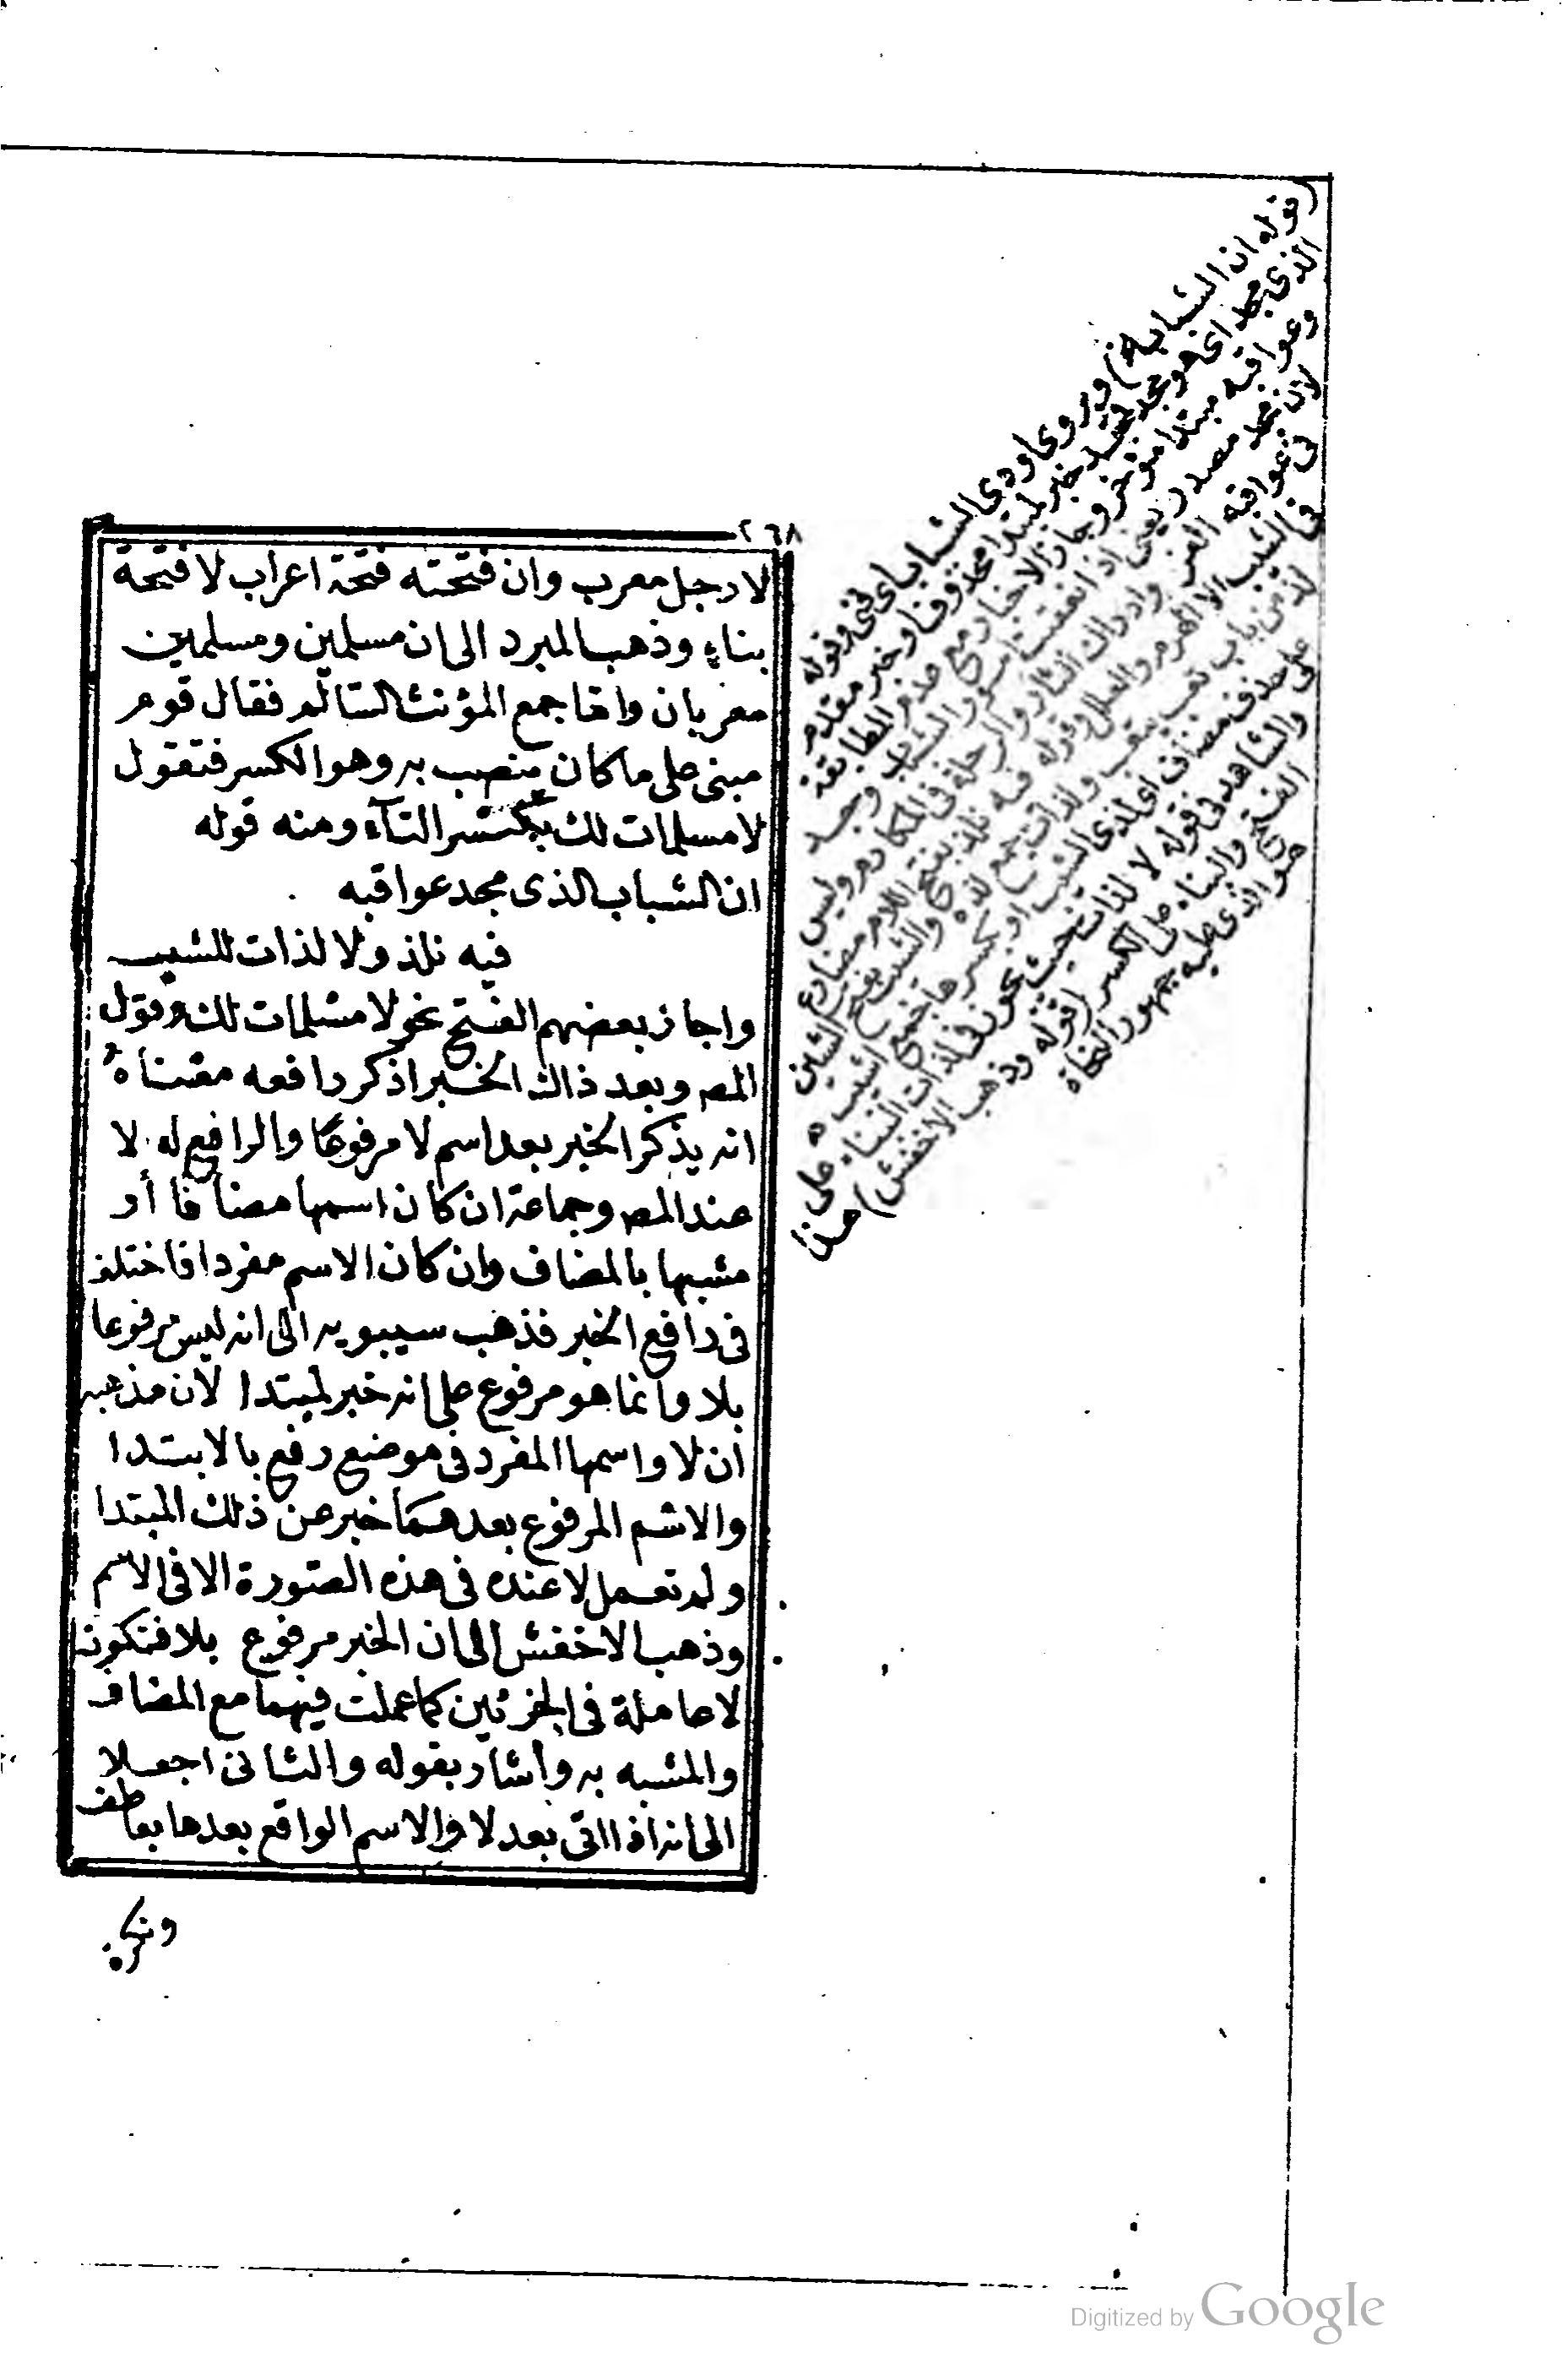 ٢٦٨
لا رجل معرب وان فتحته فتحة اعراب لا فتحة
بناء وذهب المبرد الى ان مسلمين ومسلمين
معربان واما جمع المؤنث السالم فقال قوم
مبنى على ما كان ينصب به وهو الكسر فتقول
لا مسلمات لك بكسر التآء ومنه قوله
ان الشباب الذى مجد عواقبه
فيه نلذ ولا لذات للشيب
واجاز بعضهم الفتح نحو لا مسلمات لك وقول
المص وبعد ذاك الخبر اذكر رافعه معناه
انه يذكر الخبر بعد اسم لا مرفوعا والرافع له لا
عند المص وجماعة ان كان اسمها مضافا أو
مشبها بالمضاف وان كان الاسم مفردا فاختلف
فى رافع الخبر فذهب سيبويه الى انه ليس مرفوعا
بلا وانما هو مرفوع على انه خبر لمبتدا لان مذهبه
ان لا واسمها المفرد فى موضع رفع بالابتدا
والاسم المرفوع بعدهما خبر عن ذلك المبتدا
ولم تعمل لا عنده فى هذه الصورة الا فى الاسم
وذهب الاخفش الى ان الخبر مرفوع بلا فتكون
لا عاملة فى الجزئين كما عملت فيهما مع المضاف
والمشبه به وأشار بقوله والثانى اجعلا
الى انه اذا اتى بعد لا والاسم الواقع بعدها بعاطف
(قوله ان الشباب الخ) ويروى اودى الشباب اى فنى وقوله
الذى مجد اى هو مجد فمجد خبر لمبتدا محذوف او خبر مقدم
وعواقبه مبتدا مؤخر وجاز الاخبار مع عدم المطابقة
لان مجد مصدر يعنى اذا تعقبت امور الشباب وجد
فى عواقبه العز وادراك الثار والرحلة فى المكارم وليس
فى الشيب الا الهرم والعلل وقوله فيه نلذ بفتح اللام مضارع
لذ من باب تعب يتعب ولذات جمع لذه والشيب بفتح الشين
على حذف مضاف اى لذى الشيب او بكسرها جمع اشيب
والشاهد فى قوله لا لذات حيث يجوز فى لذات البناء على
الفتح والبناء على الكسر (قوله وذهب الاخفش) هذا
هو الذى عليه جمهور النحاة
Digitized by Google